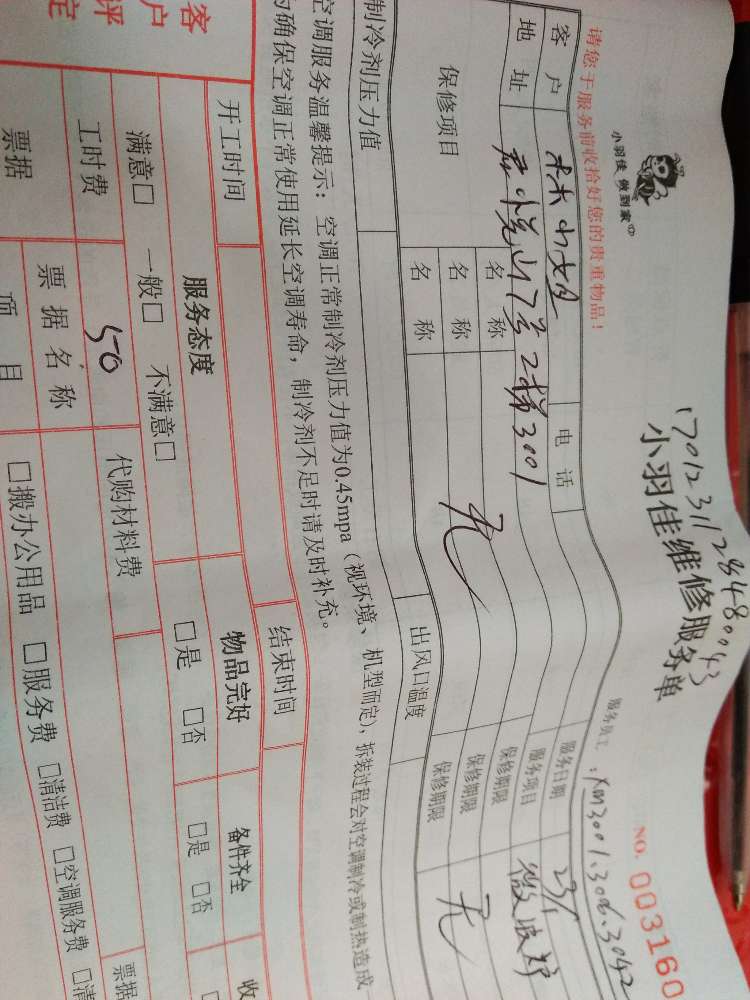 17012311284800043
小羽佳维修服务单
小羽佳 做到家
请您于服务前收拾好您的贵重物品!
服务员工:XM3001.3006.3042
NO. 003160
客户 林小姐 电话 服务日期 23/1
地址 君悦山7号2梯3001 服务项目 微波炉
保修项目 名称 保修期限
名称 无 保修期限 无
名称 保修期限
制冷剂压力值 出风口温度
空调服务温馨提示:空调正常制冷剂压力值为0.45mpa(视环境、机型而定),拆装过程会对空调制冷或制热造成
确保空调正常使用延长空调寿命,制冷剂不足时请及时补充。
开工时间 结束时间
客户评定
服务态度 物品完好 备件齐全 收
满意□ 一般□ 不满意□ □是 □否 □是 □否
工时费 50 代购材料费
票据 票据名称 票据
项目 □搬办公用品 □服务费 □清洁费 □空调服务费 □清